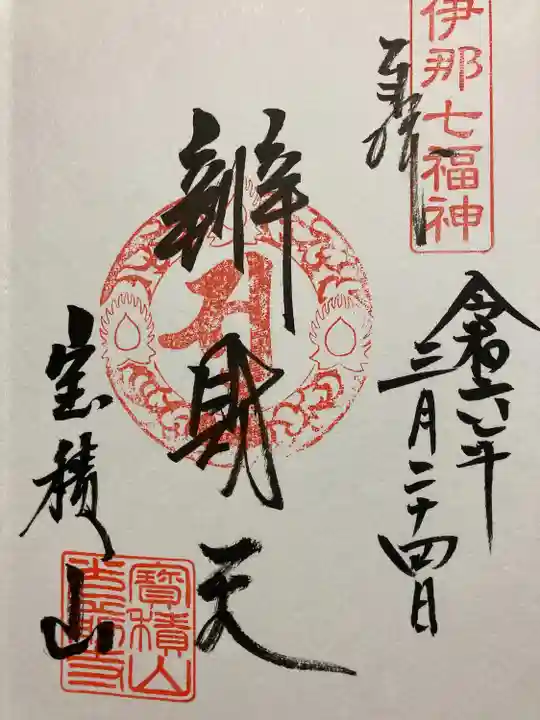 伊那七福神
奉拝
令和六年
三月二十四日
辦財天
宝積山
寶積山